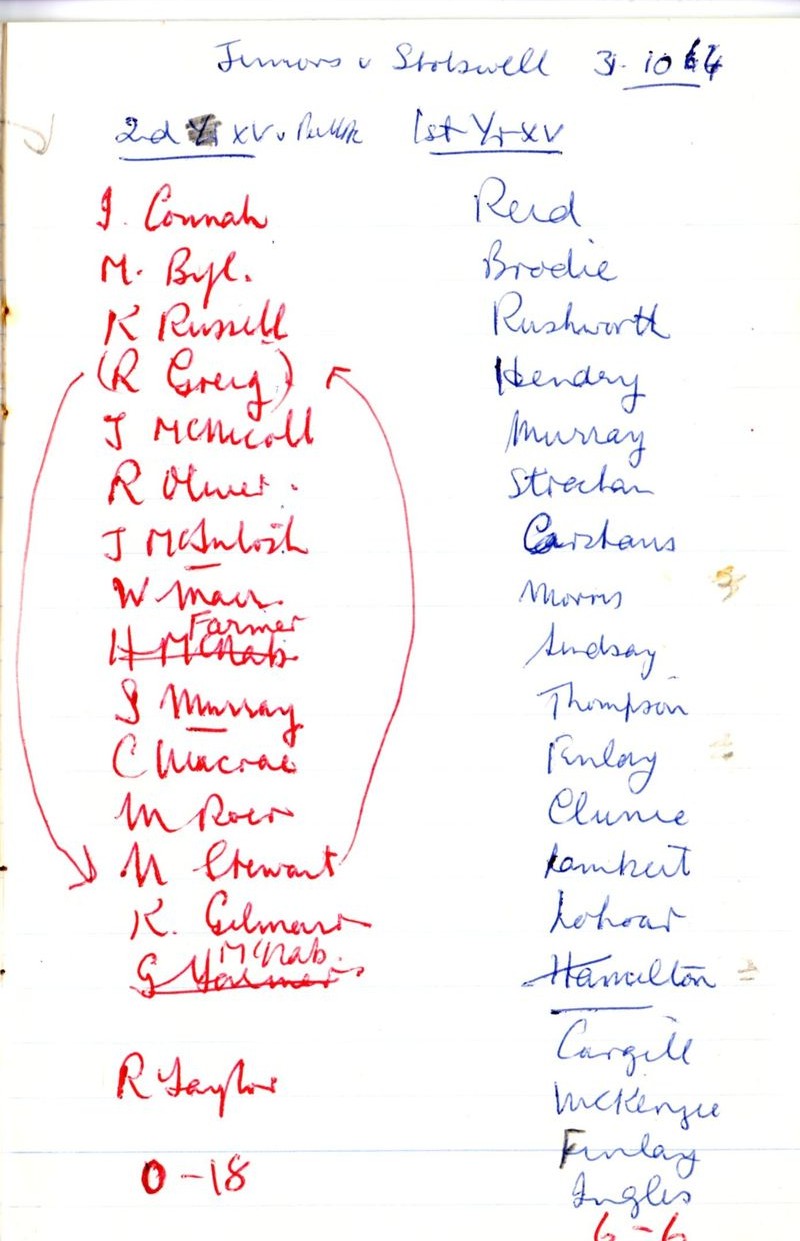 Juniors v Strobswell 31.10.64
2nd Yr XV v
1st Yr XV
I. Connah
M. Byl.
K Russell
(R Greig)
J McNicoll
R Oliver.
J McIntosh
W Mair.
Farmer
H McNab.
S Murray
C Macrae
M
N Stewart
K. Gilmour
McNab.
G Farmer
R Taylor
0-18
Reid
Brodie
Rushworth
Hendry
Murray
Strachan
Carstairs
Morris
Lindsay
Thompson
Finlay
Clunie
Lambert
Lohoar
Hamilton
Cargill
McKenzie
Finlay
Ingles
6-6